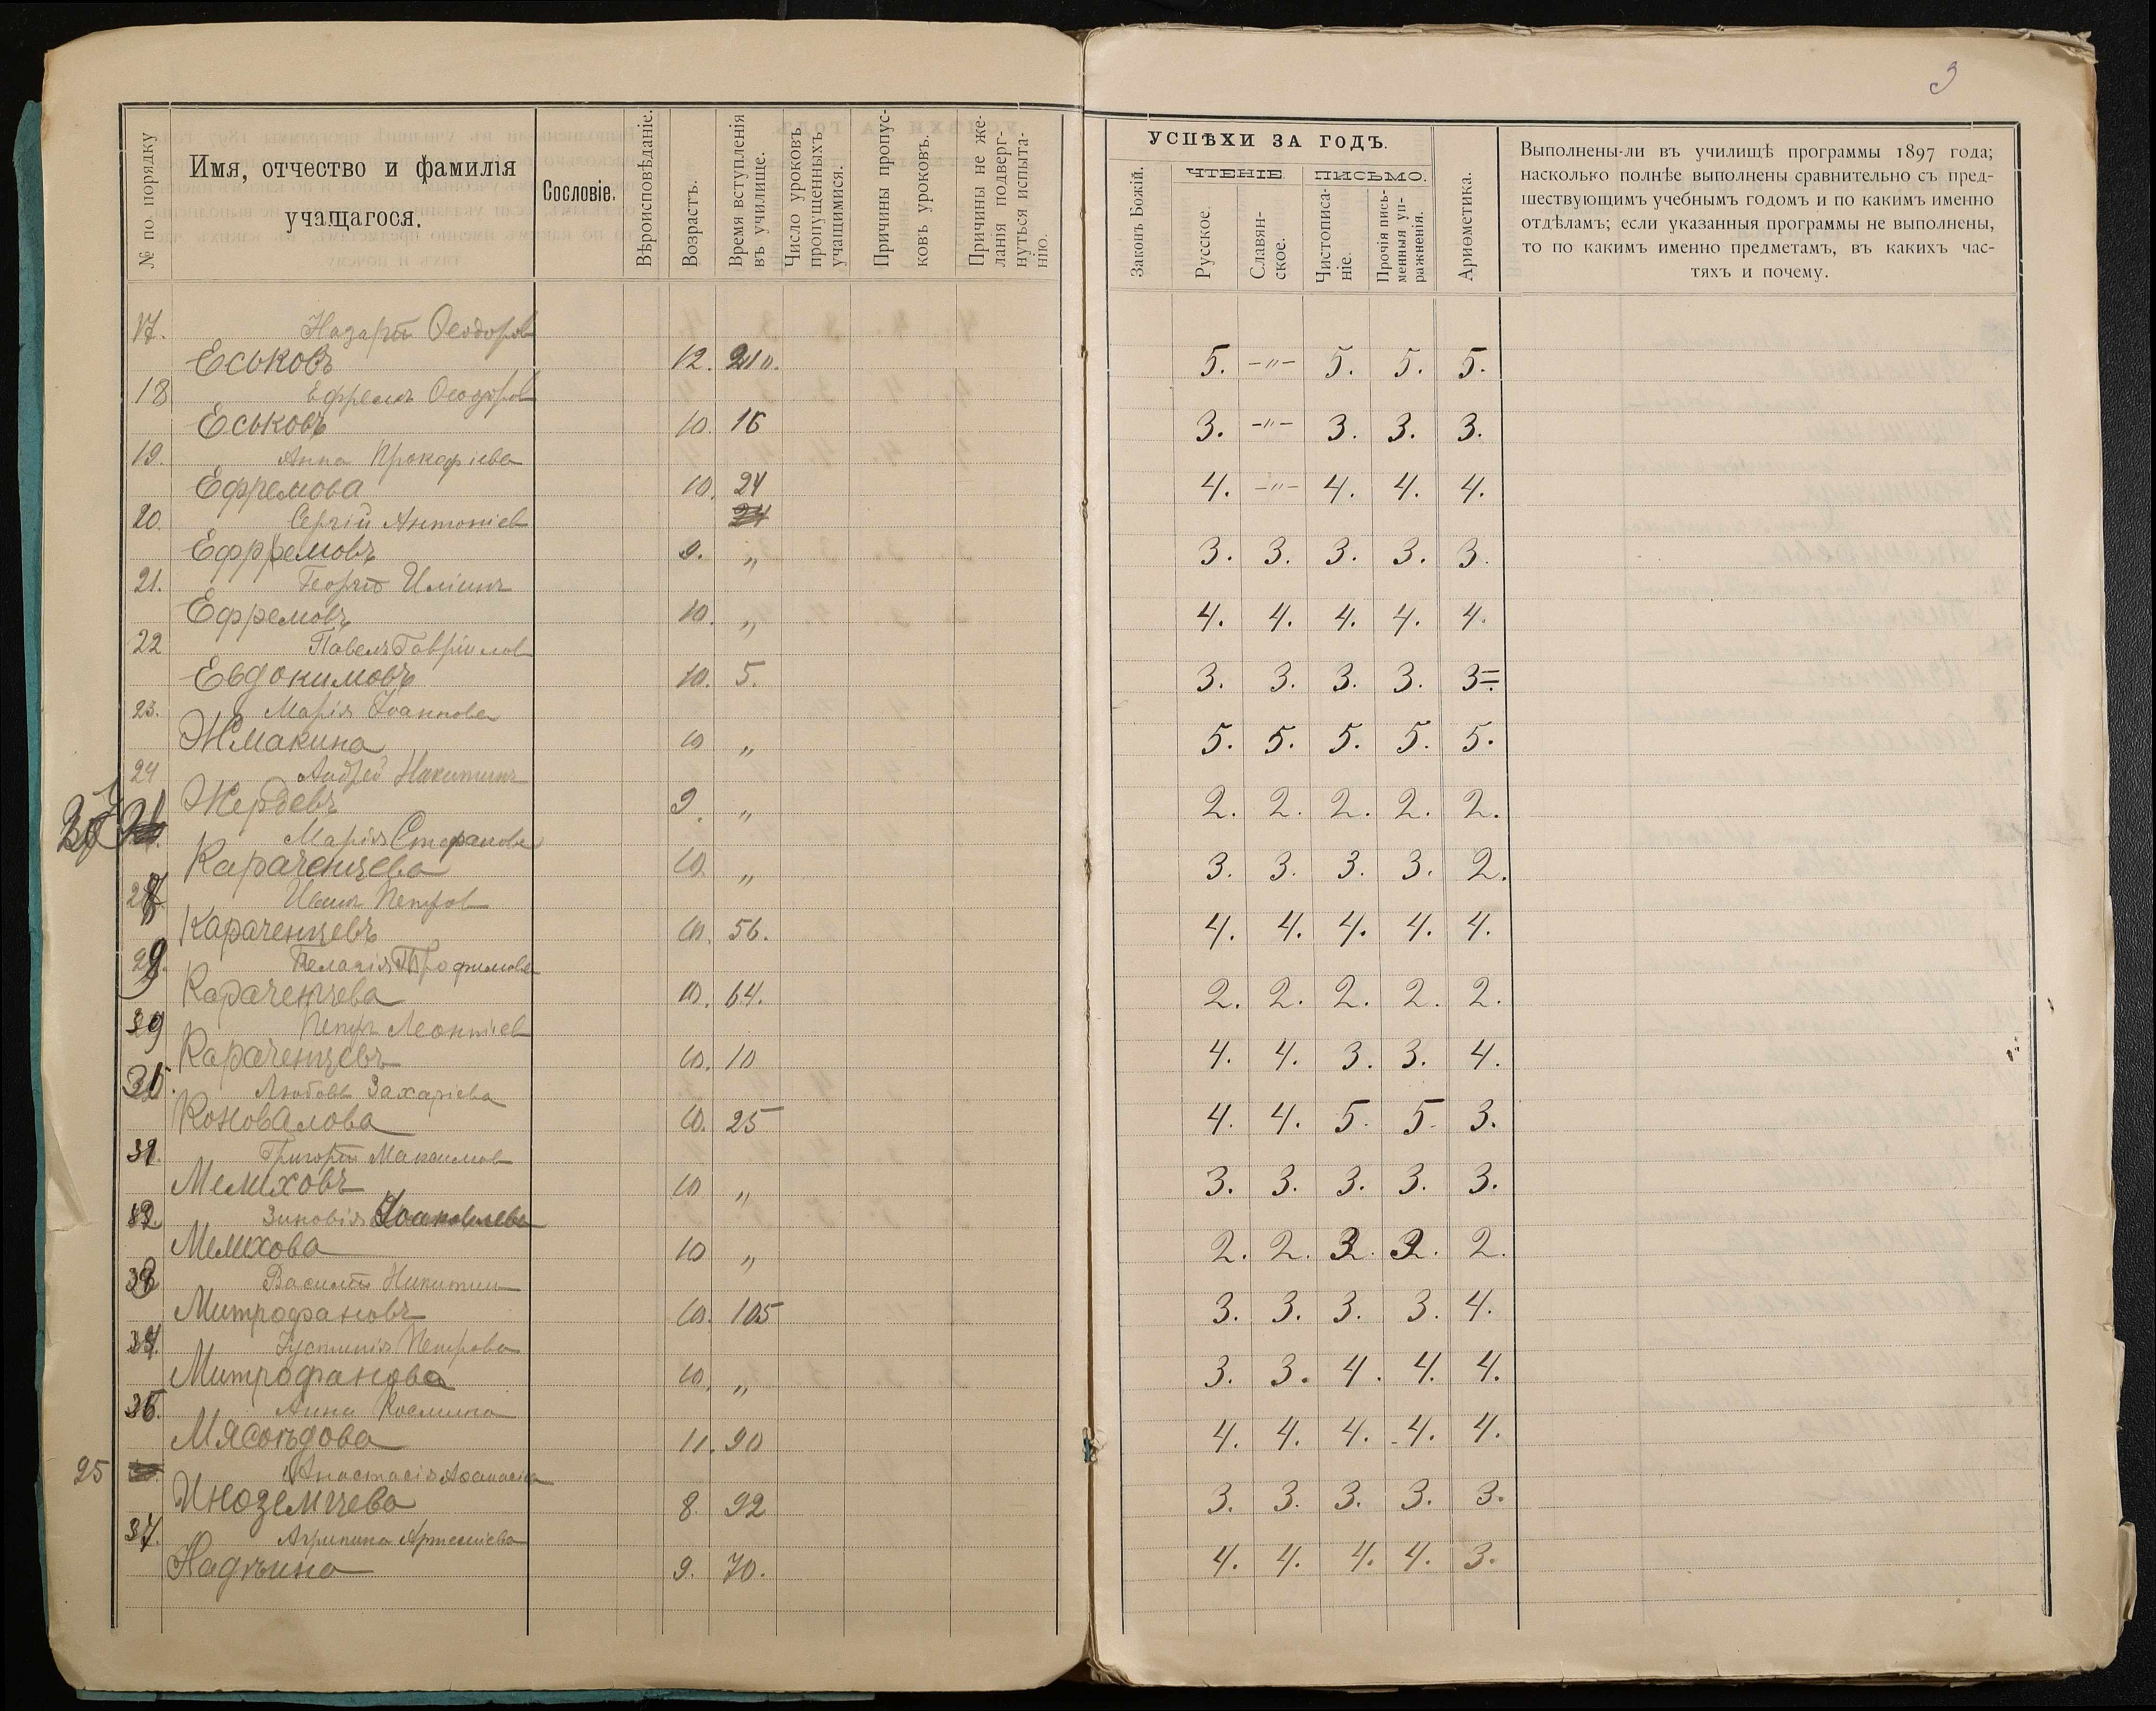 3
№ по порядку
Имя, отчество и фамилія
учащагося.
Сословіе.
Вѣроисповѣданіе.
Возрастъ.
Время вступленія
въ училище.
Число уроковъ
пропущенныхъ
учащимися.
Причины пропус-
ковъ уроковъ.
Причины не же-
ланія подверг-
нуться испыта-
нію.
УСПѢХИ ЗА ГОДЪ.
Законъ Божій.
ЧТЕНІЕ
Русское.
Славян-
ское.
ПИСЬМО.
Чистописа-
ніе.
Прочія пись-
менныя уп-
ражненія.
Ариѳметика.
Выполнены-ли въ училищѣ программы 1897 года;
насколько полнѣе выполнены сравнительно съ пред-
шествующимъ учебнымъ годомъ и по какимъ именно
отдѣламъ; если указанныя программы не выполнены,
то по какимъ именно предметамъ, въ какихъ час-
тяхъ и почему.
17. Назарій Ѳеодоров
Еськовъ 12. 210. 5. -"- 5. 5. 5.
18 Ефремъ Ѳеодоров
Еськовъ 10. 16 3. -"- 3. 3. 3.
19. Анна Прокофіева
Ефремова 10. 24 4. -"- 4. 4. 4.
20. Сергій Антоніев
24
Ефремовъ 9. " 3. 3. 3. 3. 3.
21. Георгій Иліинъ
Ефремовъ 10. " 4. 4. 4. 4. 4.
22 Павелъ Гавріилов
Евдокимовъ 10. 5. 3. 3. 3. 3. 3=.
23. Марія Іоаннова
Жмакина 10 " 5. 5. 5. 5. 5.
24 Андрей Никитинъ
Жердевъ 9. " 2. 2. 2. 2. 2.
Марія Стефанова
Караченцева 10. " 3. 3. 3. 3. 2.
Иванъ Петров
Караченцевъ 10. 56. 4. 4. 4. 4. 4.
Пелагія Трофимова
Караченцева 10. 64. 2. 2. 2. 2. 2.
Петръ Леонтіев
Караченцевъ 10. 10 4. 4. 3. 3. 4.
Любовь Захаріева
Коновалова 10. 25 4. 4. 5. 5. 3.
Григорій Максимов
Мелиховъ 10 " 3. 3. 3. 3. 3.
Зиновія
Мелихова 10 " 2. 2. 2.
Василій Никитин
Митрофановъ 10. 105 3. 3. 3. 3. 4.
34. Іустинія Петрова
Митрофанова 10. " 3. 3. 4. 4. 4.
Анна Космина
Мясоѣдова 11. 90 4. 4. 4. 4. 4.
25 Анастасія Аѳанасіева
Иноземцева 8. 92 3. 3. 3. 3. 3.
37. Агрипина Артеміева
Надѣина 9. 70. 4. 4. 4. 4. 3.